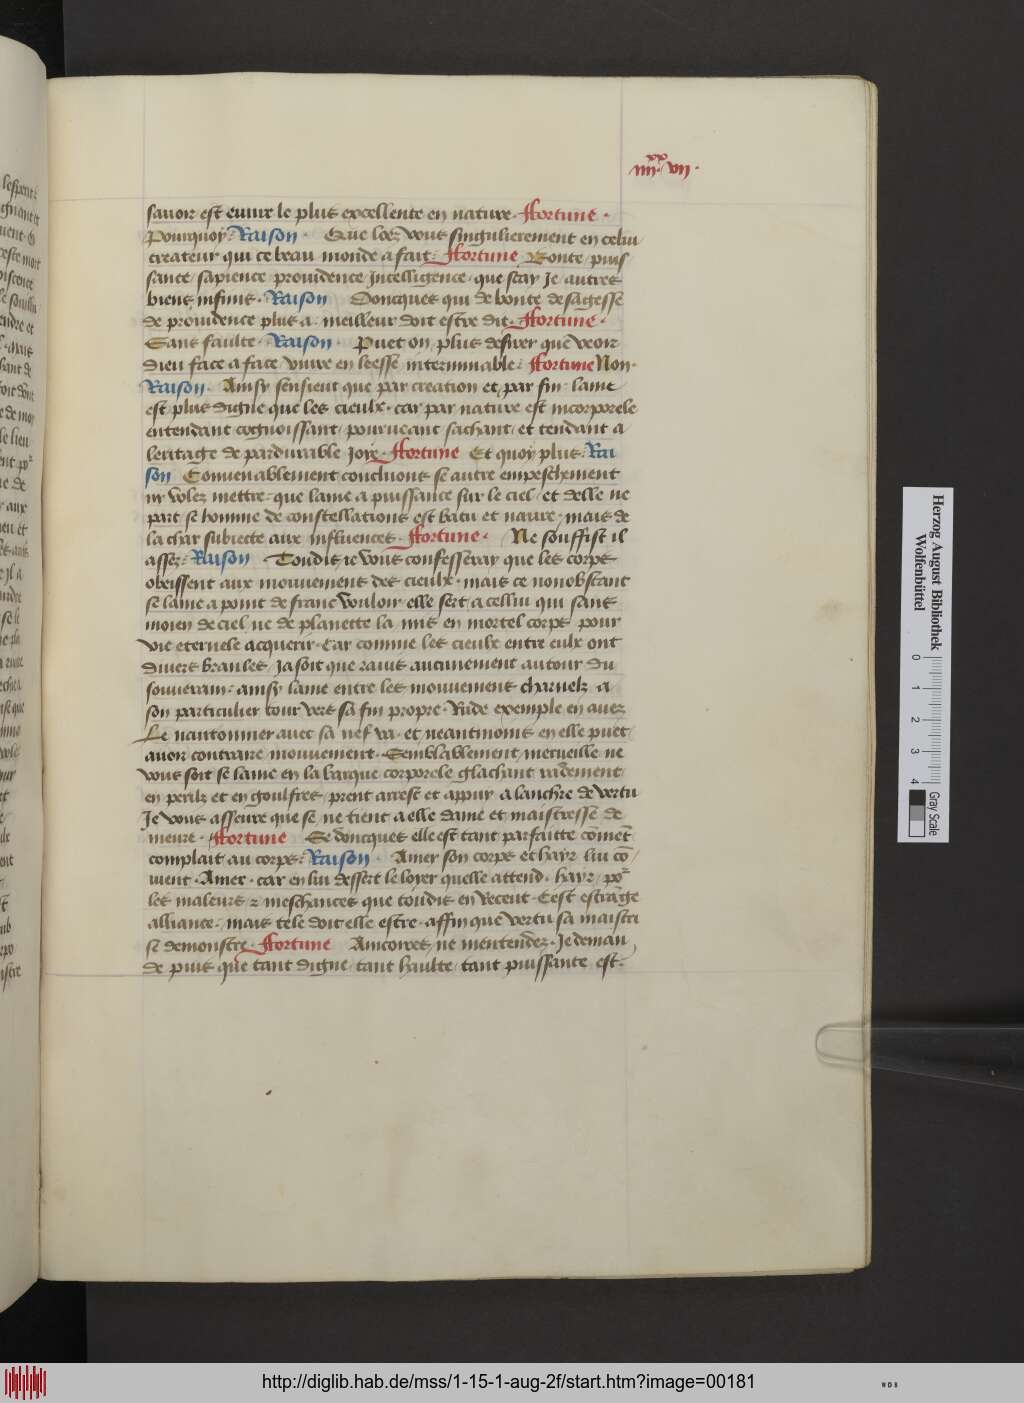 iiii xx vii ·
savoir est euure le plus excellente en nature · Fortune ·
Pourquoy · Raison · Que loez vous singulierement en celui
createur qui ce beau monde a fait · Fortune Bonte / puis
sance / sapience prouidence / Intelligence · que scay Je / autres
biens infinis · Raison Doncques qui de bonte de sagesse
de prouidence plus a · meilleur doit estre dit · Fortune ·
Sans faulte · Raison · Puet on plus desirer que veoir
Dieu face a face viure en leesse interminable · Fortune Non ·
Raison · Ainsy sensieut que par creation et par fin lame
est plus digne que les cieulx · car par nature est incorporele
entendant cognoissant / pourueant sachant / et tendant a
leritage de pardurable Joye · Fortune Et quoy plus · Rai
son Conuenablement concluons se autre empeschement
ny volez mettre · que lame a puissance sur le ciel / et delle ne
part se homme de constellations est batu et naure · mais de
la char subiecte aux influences · Fortune · Ne souffist il
assez · Raison · Toudis ie vous confesseray que les corps
obeissent aux mouuemens des cieulx · mais ce nonobstant
se lame a point de franc vouloir elle sert a cellui qui sans
moien de ciel ne de planette la mis en mortel corps pour
vie eternele acquerir · Car comme les cieulx entre eulx ont
diuers branles / Ja soit que rauis aucunement autour du
souuerain · ainsy lame entre les mouuemens charnelz a
son particulier tour vers sa fin propre · Rude exemple en auez
Le nautonnier auec sa nef va · et neantmoins en elle puet
auoir contraire mouuement · Semblablement merueille ne
vous soit se lame en la barque corporele glachant raidement
en perilz et en goulfres / prent arrest et appuy a lanchre de vertu
Je vous asseure que se ne tient a elle dame et maistresse de
meure · Fortune Se doncques elle est tant parfaitte comment
complait au corps · Raison · Amer son corps et hayr lui co /
uient · Amer · car en lui dessert le loyer quelle attend · hayr / por
les maleurs et meschances que toudis en Recent · Cest estrange
alliance / mais tele doit elle estre · affin que vertu sa maistri
se demonstre · Fortune Aincores ne mentendez · Je deman
de puis que tant digne / tant haulte / tant puissante est ·
Herzog August Bibliothek
Wolfenbüttel
0 1 2 3 4
Gray Scale
http://diglib.hab.de/mss/1-15-1-aug-2f/start.htm?image=00181
WDB